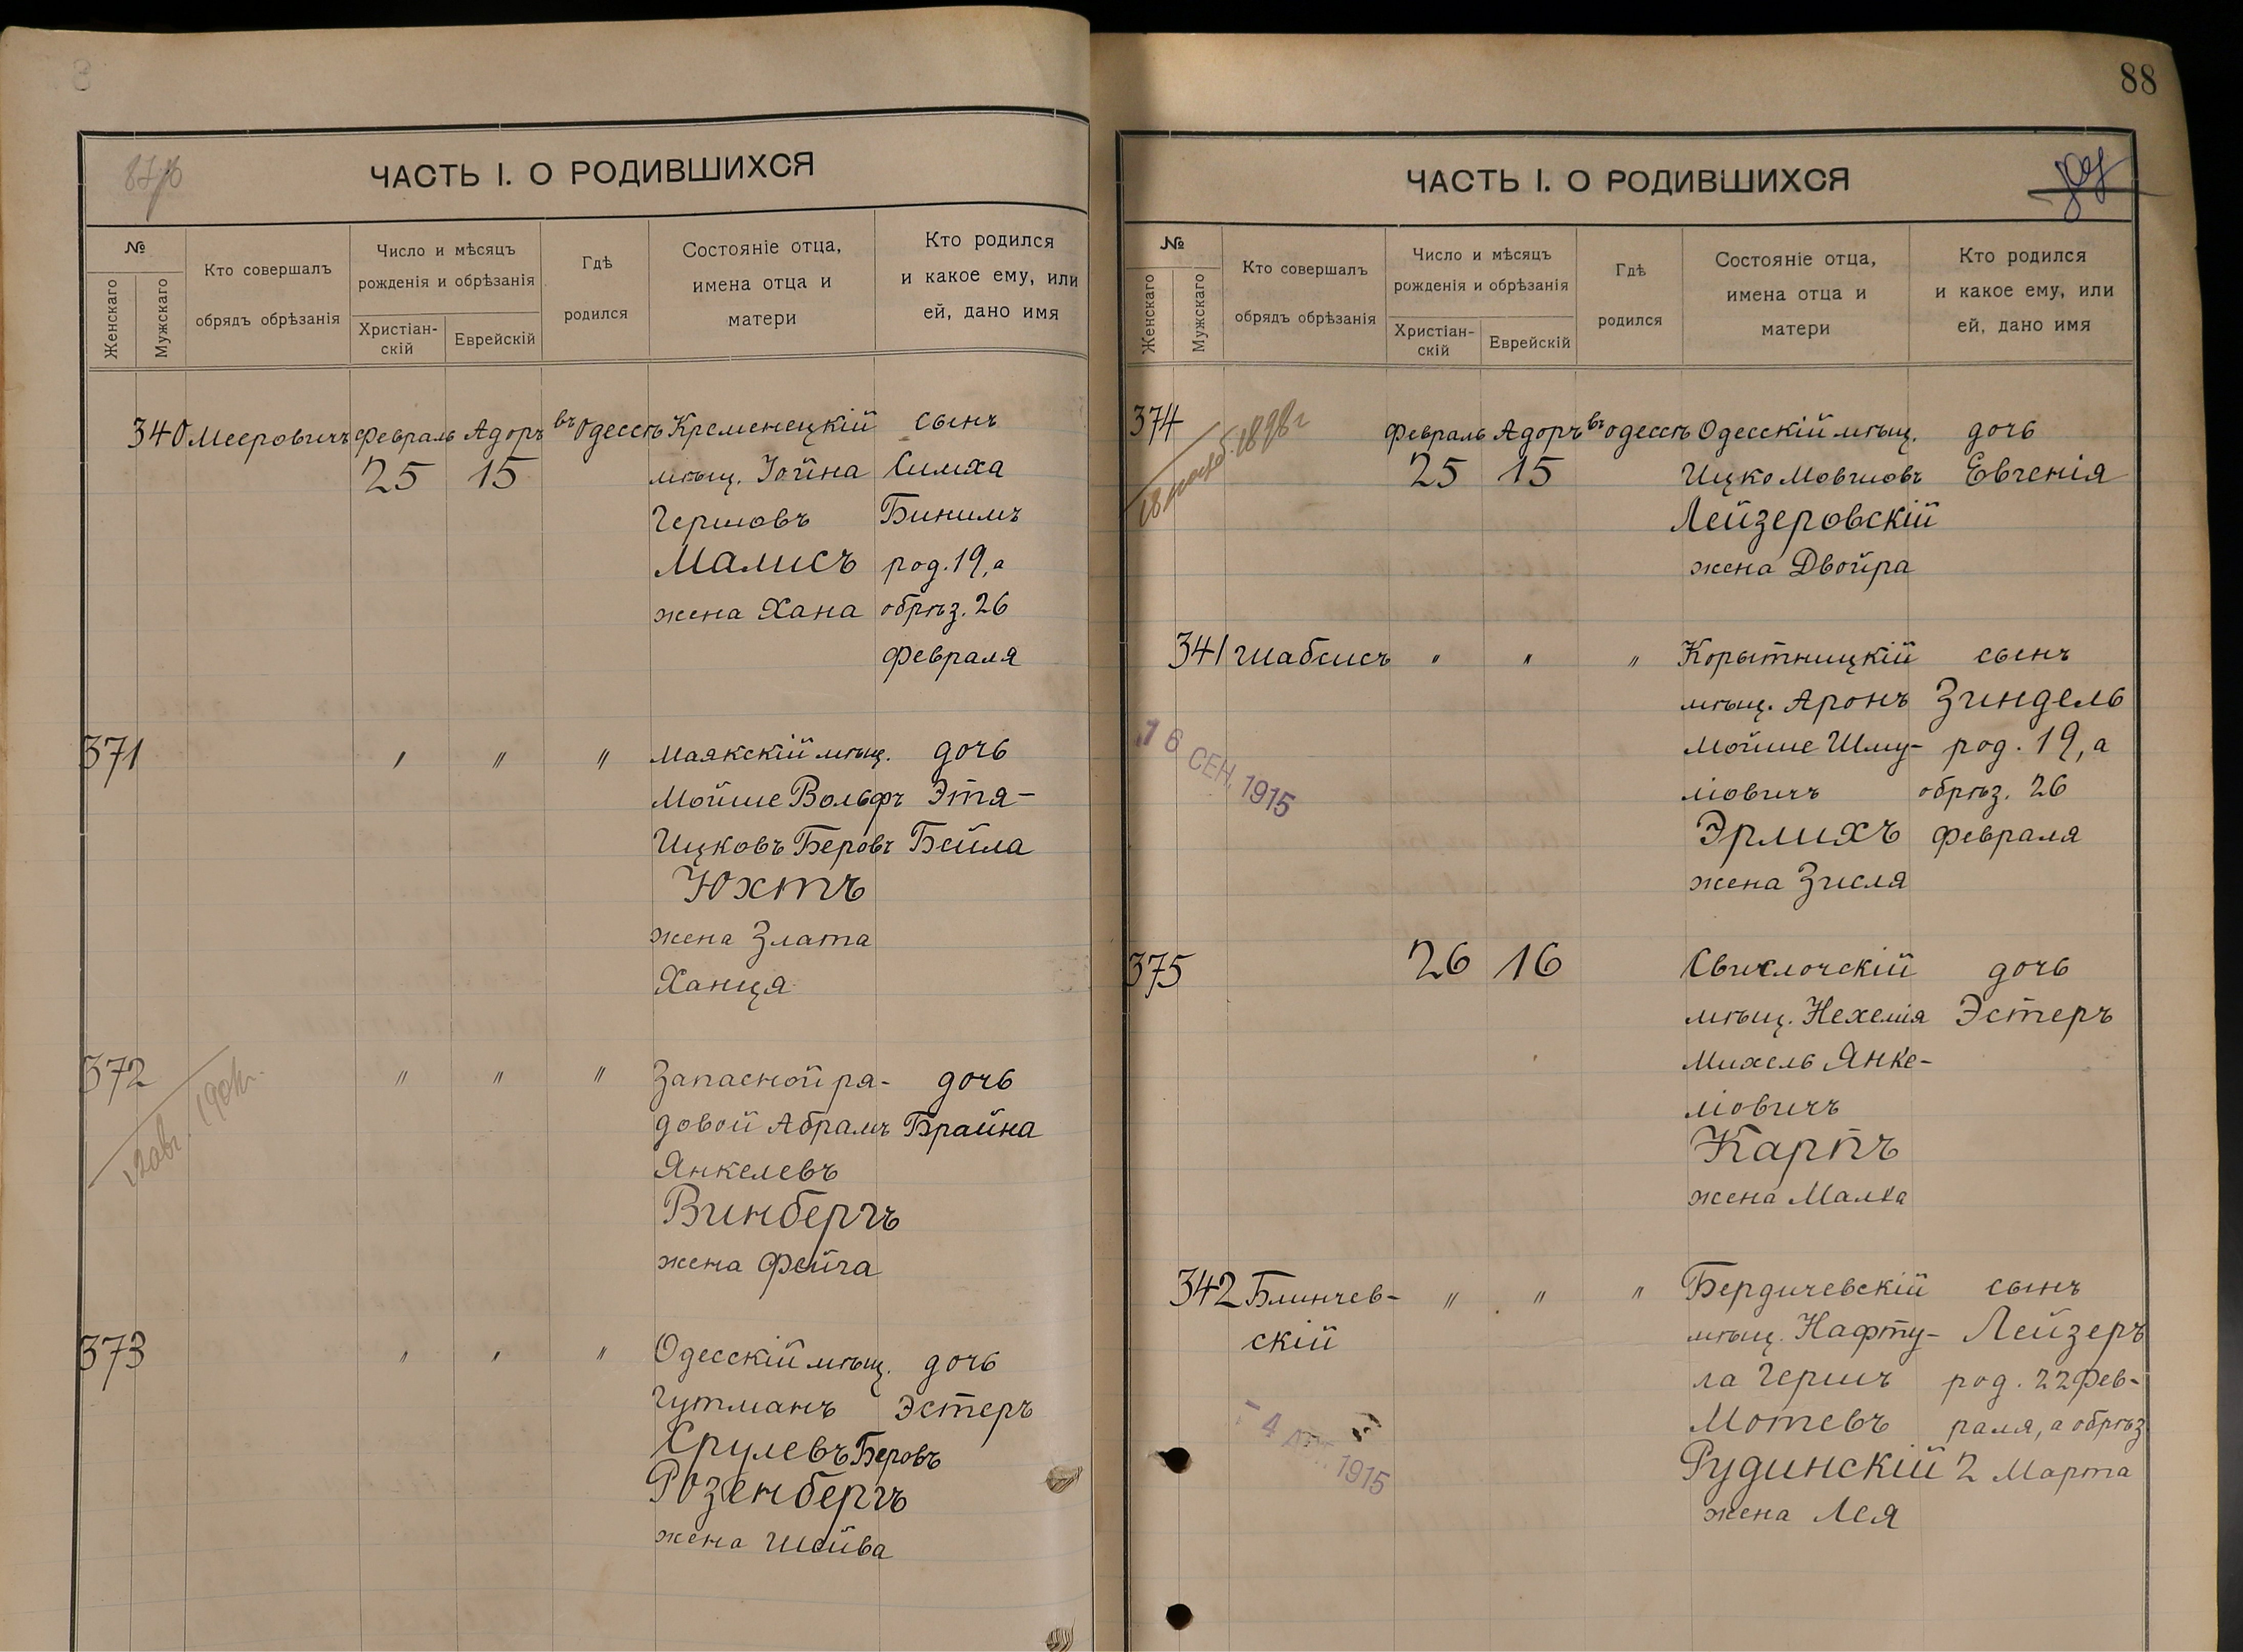 ЧАСТЬ I. О РОДИВШИХСЯ
№
Женскаго
Мужскаго
Кто совершалъ
обрядъ обрѣзанія
Число и мѣсяцъ
рожденія и обрѣзанія
Христіан-
скій
Еврейскій
Гдѣ
родился
Состояніе отца,
имена отца и
матери
Кто родился
и какое ему, или
ей, дано имя
340 Мееровичъ Февраль Адоръ въ Одессѣ Кременецкій сынъ
25 15 мѣщ. Іойна Симха
Гершовъ Бинимъ
Малисъ род. 19, а
жена Хана обрѣз. 26
Февраля
371 " " " Маякскій мѣщ. дочь
Мойше Вольфъ Этя-
Ицковъ Беровъ Бейла
Юхтъ
жена Злата
Ханця
372 " " " Запасной ря- дочь
довой Абрамъ Брайна
Янкелевъ
Винбергъ
жена Фейга
373 " " " Одесскій мѣщ. дочь
Гутманъ Эстеръ
Срулевъ Беровъ
Розенбергъ
жена Шейва
88
ЧАСТЬ I. О РОДИВШИХСЯ
№
Женскаго
Мужскаго
Кто совершалъ
обрядъ обрѣзанія
Число и мѣсяцъ
рожденія и обрѣзанія
Христіан-
скій
Еврейскій
Гдѣ
родился
Состояніе отца,
имена отца и
матери
Кто родился
и какое ему, или
ей, дано имя
374 Февраль Адоръ въ Одессѣ Одесскій мѣщ. дочь
25 15 Ицко Мовшовъ Евгенія
Лейзеровскій
жена Двойра
341 Шабсисъ " " " Корытницкій сынъ
мѣщ. Аронъ Зиндель
Мойше Шму- род. 19, а
ліовичъ обрѣз. 26
Эрлихъ Февраля
жена Зисля
16 СЕН. 1915
375 26 16 Свислочскій дочь
мѣщ. Нехемія Эстеръ
Михель Янке-
ліовичъ
Карпъ
жена Малка
342 Блинчев- " " " Бердичевскій сынъ
скій мѣщ. Нафту- Лейзеръ
ла Гершъ род. 22 Фев-
Мотевъ раля, а обрѣз
Рудинскій 2 Марта
жена Лея
1915